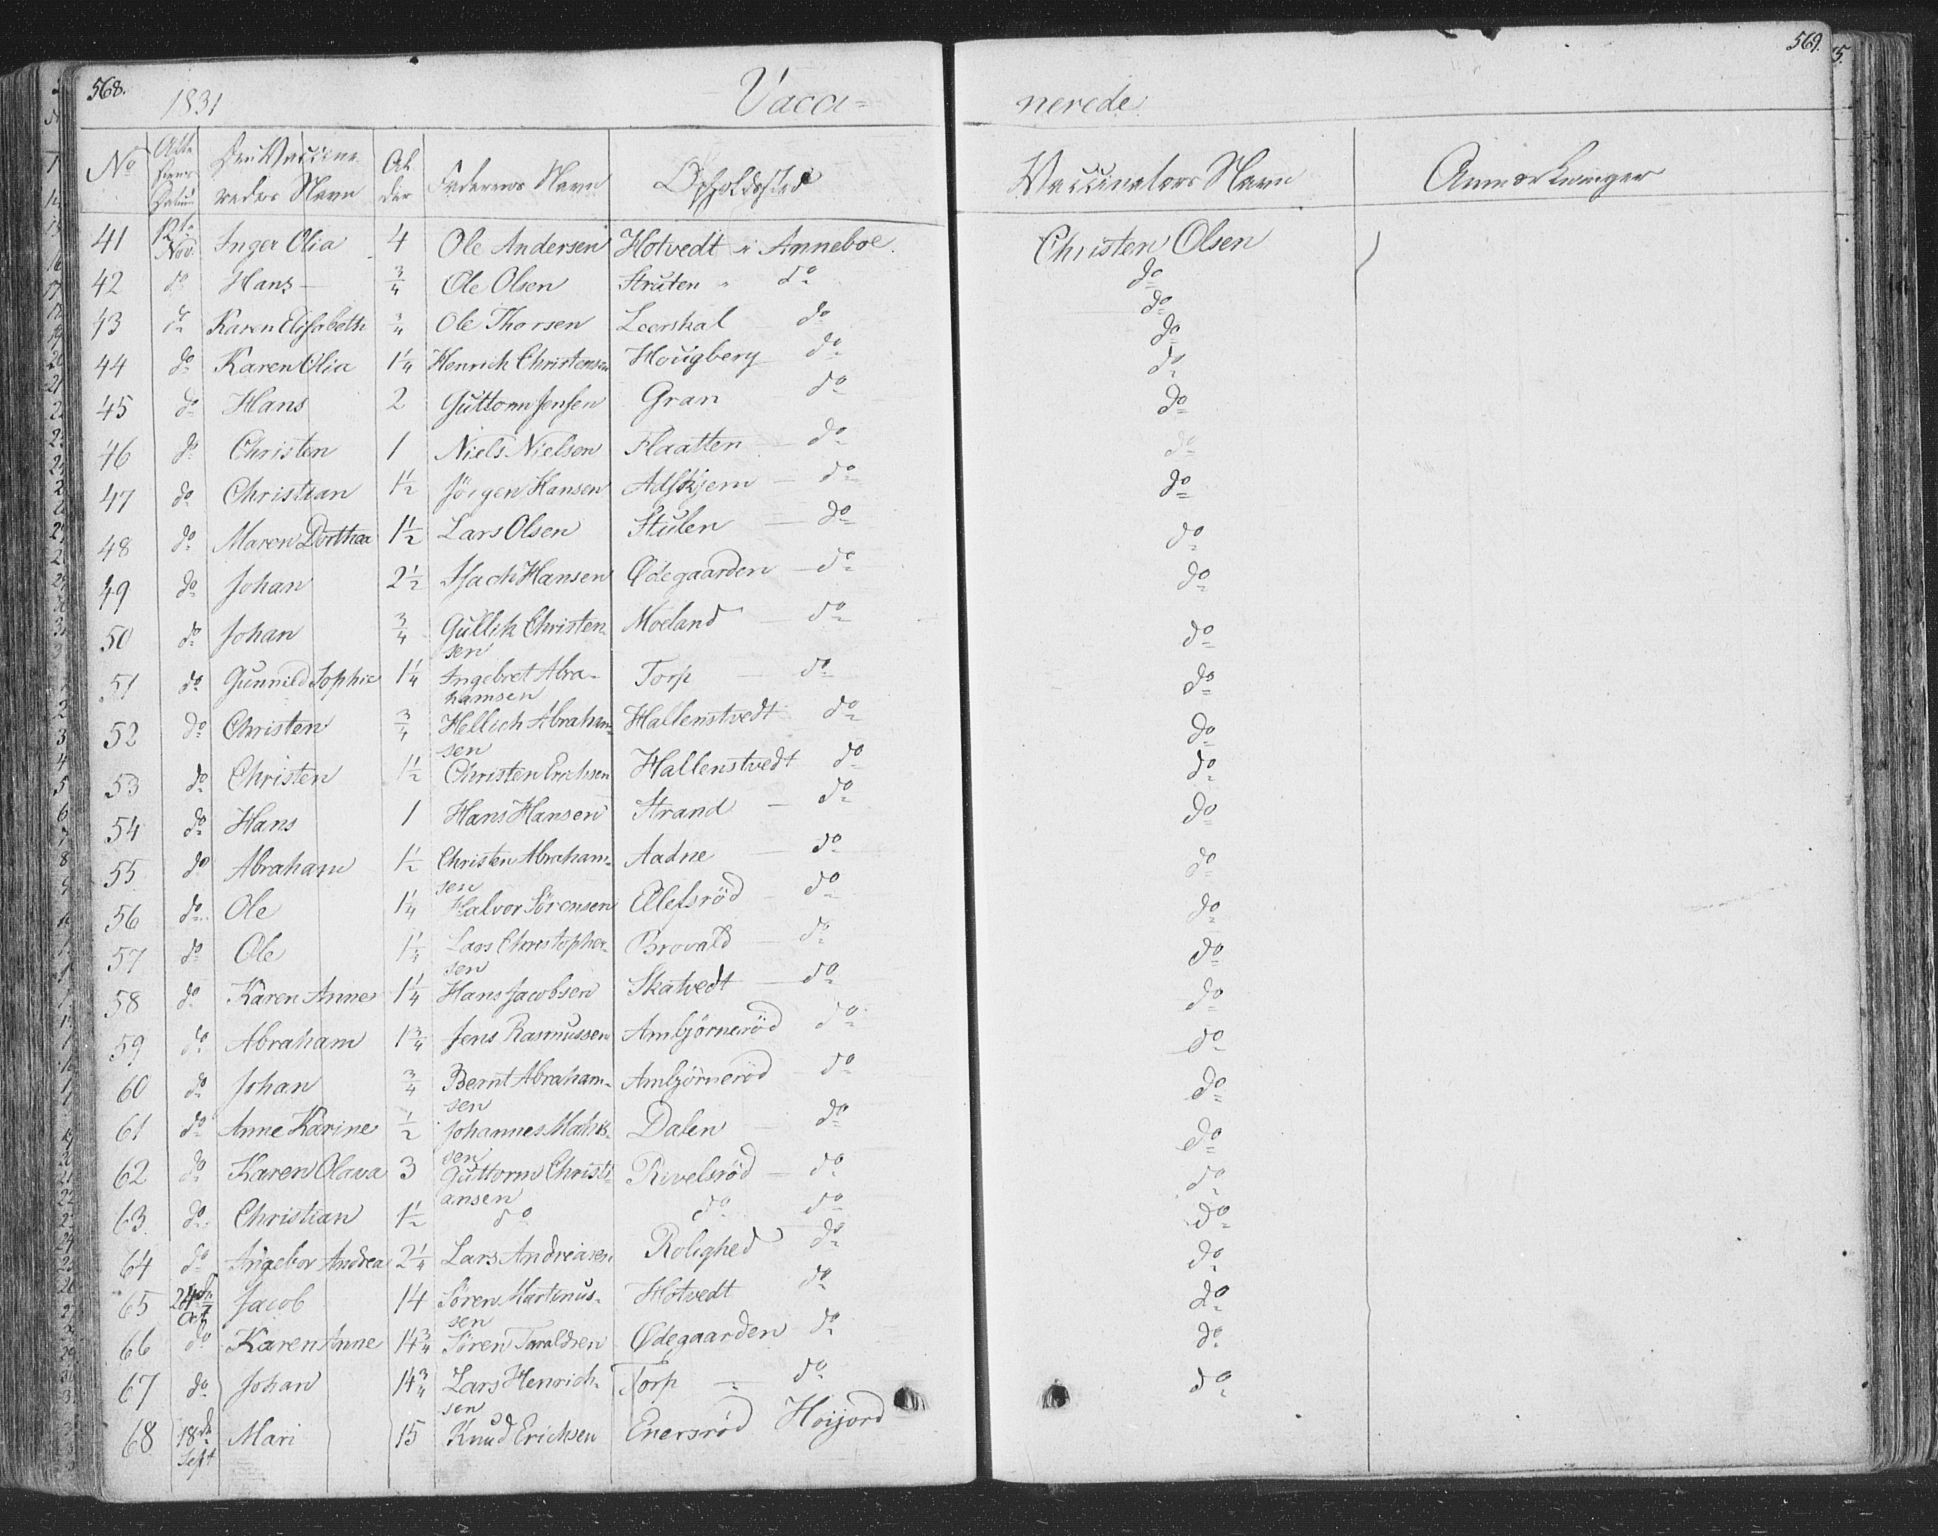 568. 569.
1831 Vacci= nerede
No Atte stens Datum Den Vaccine redes Navn Al der Faderens Navn Opholdssted Vaccinators Navn Anmærkninger
41 12te Nov. Inger Olia 4 Ole Andersen Hotvedt i Anneboe. Christen Olsen
42 do Hans 3/4 Ole Olsen Struten " do do
43 do Karen Elisabeth 3/4 Ole Thorsen Leerskal do do
44 do Karen Olia 1 1/4 Henrich Christensen Hougberg do do
do
45 do Hans 2 Guttorm Jensen Gran do do
46 do Christen 1 Niels Nielsen Flaatten do do
47 do Christian 1 1/2 Jörgen Hansen Adskjem do do
48 do Maren Dorthea 1 1/2 Lars Olsen Stulen do do
49 do Johan 2 1/2 Isach Hansen Ødegaarden do do
50 do Johan 3/4 Gullik Christen- sen Moeland do do
51 do Gunnild Sophie 1 1/4 Ingebret Abra- hamsen Torp do do
52 do Christen 3/4 Hellich Abraham- sen Hallenstvedt do do
53 do Christen 1 1/2 Christen Erichsen Hallenstvedt do do
54 do Hans 1 Hans Hansen Strand do do
55 do Abraham 1 1/2 Christen Abraham- sen Aadne do do
56 do Ole 1 1/4 Halvor Sörensen Ellefsröd do do
57 do Ole 1 1/4 Lars Christopher- sen Brovald do do
58 do Karen Anne 1 1/4 Hans Jacobsen Skatvedt do do
59 do Abraham 1 3/4 Jens Rasmussen Ambjörneröd do do
60 do Johan 3/4 Bernt Abraham- sen Ambjörneröd do do
61 do Anne Karine 1/2 Johannes Mathis- sen Dalen do do
62 do Karen Olava 3 Guttorm Christi- ansen Rivelsröd do do
63 do Christian 1 1/2 do do do do
64 do Ingebor Andrea 2 1/4 Lars Andreasen Rolighed do do
65 24de Jacob 14 Sören Martinus- sen Hotvedt do do
66 do Karen Anne 14 3/4 Sören Taraldsen Ødegaarden do do
67 do Johan 14 3/4 Lars Henrich- sen Torp do do
68 18de Sept Mari 15 Knud Erichsen Enersröd Hoijord